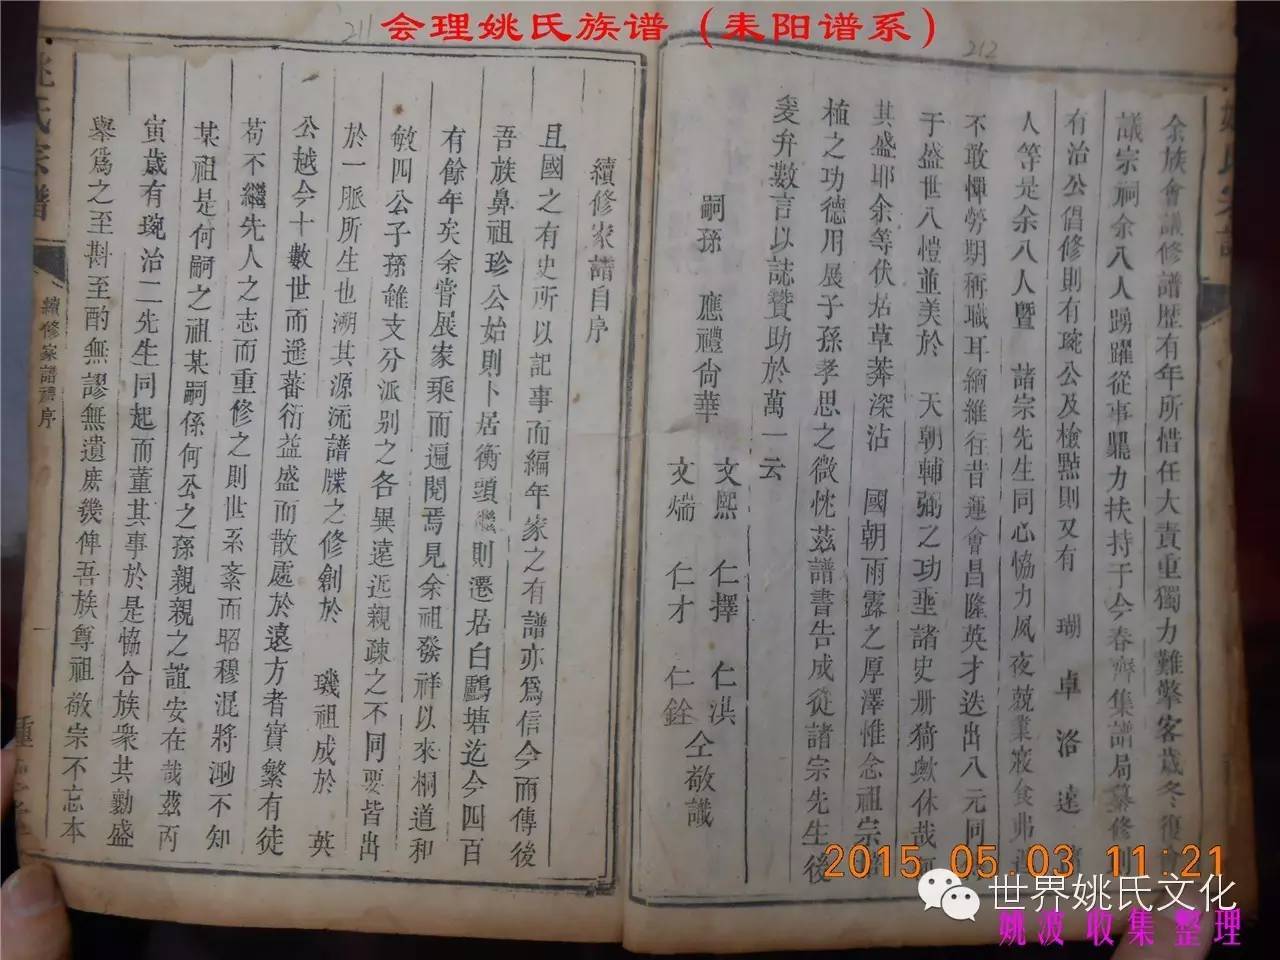 会理姚氏族谱（耒阳谱系）
211
212
余族會議修譜歷有年所惜任大責重獨力難擎客歲冬復會
議宗祠余八人踴躍從事鼎力扶持于今春齊集譜局纂修則
有治公倡修則有琬公及檢點則又有 瑚卓洛達
人等是余八人暨 諸宗先生同心恊力夙夜兢業寢食弗
不敢憚勞期稱職耳緬維往昔運會昌隆英才迭出八元同
于盛世八愷並美於 天朝輔弼之功垂諸史册猗歟休哉
其盛耶余等伏居草莽深沾 國朝雨露之厚澤惟念祖宗
植之功德用展子孫孝思之微忱茲譜書告成從諸宗先生後
爰弁數言以誌贊助於萬一云
嗣孫 應禮尙華 文熙 仁擇 仁洪
文端 仁才 仁銓 仝敬識
續修家譜自序
且國之有史所以記事而編年家之有譜亦爲信今而傳後
吾族鼻祖珍公始則卜居衡頭繼則遷居白鷳塘迄今四百
有餘年矣余嘗展家乘而遍閱焉見余祖發祥以來桐道和
敏四公子孫雖支分派别之各異遠近親疎之不同要皆出
於一脈所生也溯其源流譜牒之修創於 璣祖成於 英
公越今十數世而遥蕃衍益盛而散處於遠方者實繁有徒
苟不繼先人之志而重修之則世系紊而昭穆混將泐不知
某祖是何嗣之祖某嗣係何公之孫親親之誼安在哉茲丙
寅歲有琬治二先生同起而董其事於是恊合族衆共勷盛
舉爲之至斟至酌無謬無遺庶幾俾吾族尊祖敬宗不忘本
姚氏宗譜
續修家譜禮序
一
2015 05 03 11:21
世界姚氏文化
姚波 收集 整理